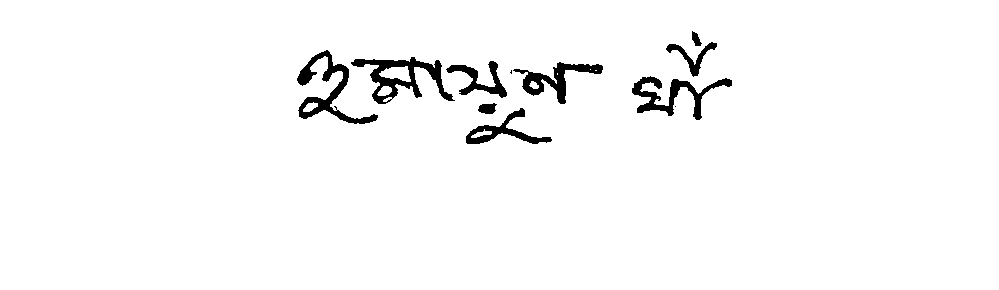 হুমায়ুন খাঁ